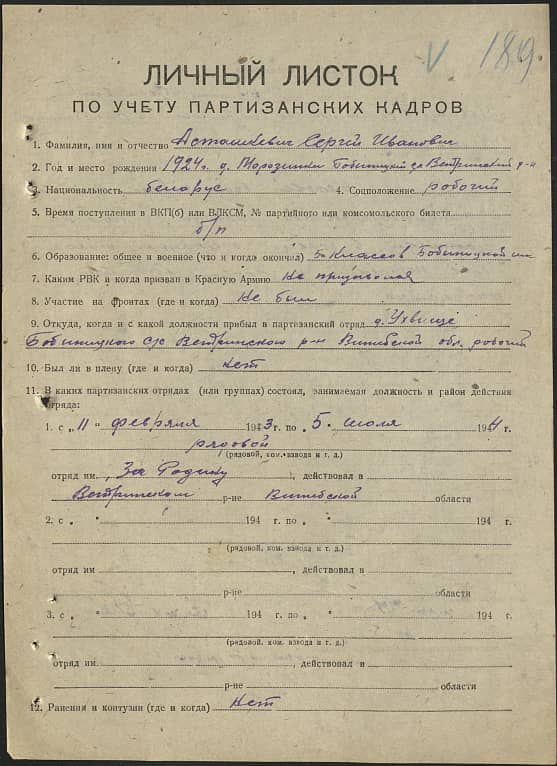 V 189
ЛИЧНЫЙ ЛИСТОК
ПО УЧЕТУ ПАРТИЗАНСКИХ КАДРОВ
1. Фамилия, имя и отчество Асташкевич Сергей Иванович
2. Год и место рождения 1924г. д. Морозинки Бобыницкий Ветринский р-н
3. Национальность беларус 4. Соцположение робочий
5. Время поступления в ВКП(б) или ВЛКСМ, № партийного или комсомольского билета
б/п
6. Образование: общее и военное (что и когда окончил) 5 классов Бобыницкой шк
7. Каким РВК и когда призван в Красную Армию Не призывался
8. Участие на фронтах (где и когда) Не был
9. Откуда, когда и с какой должности прибыл в партизанский отряд д.
Бобыницкого с/с Ветринского р-н Витебской обл. робочий
10. Был ли в плену (где и когда) Нет
11. В каких партизанских отрядах (или группах) состоял, занимаемая должность и район действия
отряда:
1. с „ 11 " февраля 1943г. по „ 5. июля 1944 г.
рядовой
(рядовой, ком. взвода и т. д.)
отряд им. „За Родину , действовал в
Ветринском р-не Витебской области
2. с „ " 194 г. по „ " 194 г.
(рядовой, ком. взвода и т. д.)
отряд им , действовал в
р-не области
3. с „ " 194 г. по „ " 194 г.
(рядовой, ком. взвода и т. д.)
отряд им. , действовал в
р-не области
12. Ранения и контузии (где и когда) Нет